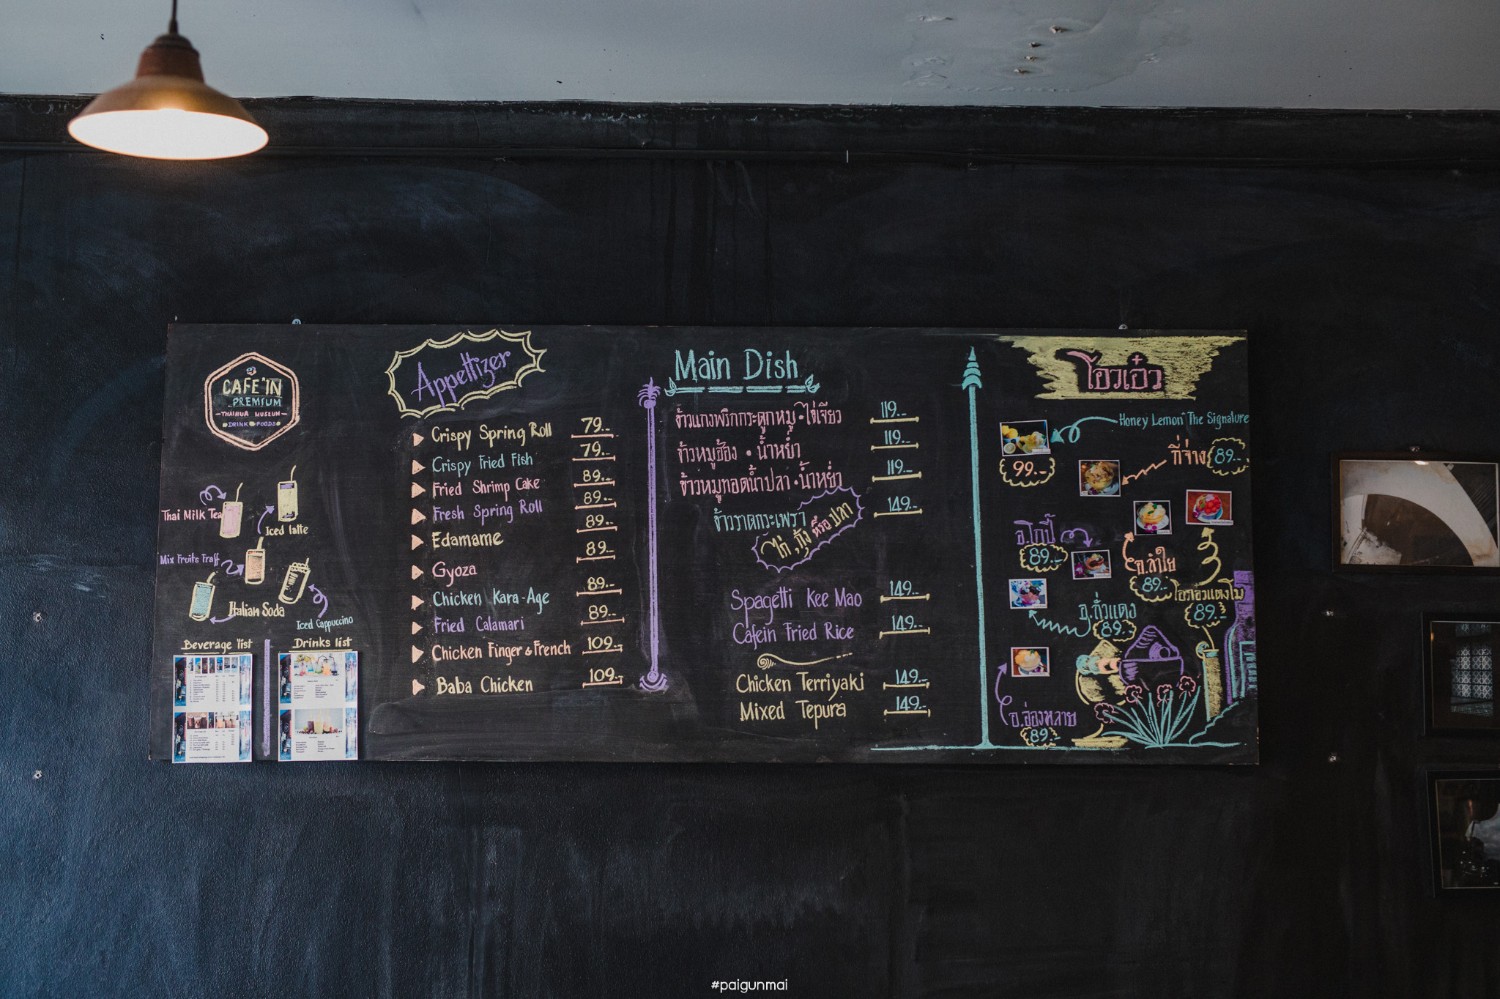 CAFE'IN
PREMIUM
THAIHUA MUSEUM
DRINK & FOODS
Thai Milk Tea
Iced latte
Mix Fruits Fraff
Italian Soda
Iced Cappuccino
Beverage list
Drinks list
Appettizer
Crispy Spring Roll 79.-
Crispy Fried Fish 79.-
Fried Shrimp Cake 89.-
Fresh Spring Roll 89.-
Edamame 89.-
Gyoza 89.-
Chicken Kara-Age 89.-
Fried Calamari 89.-
Chicken Finger & French 109.-
Baba Chicken 109.-
Main Dish
ข้าวแกงพริกกระดูกหมู • ไข่เจียว 119.-
ข้าวหมูฮ้อง • น้ำหยำ 119.-
ข้าวหมูทอดน้ำปลา • น้ำหยำ 119.-
ข้าวราดกะเพรา 149.-
ไก่ กุ้ง หรือ ปลา
Spagetti Kee Mao 149.-
Cafein Fried Rice 149.-
Chicken Terriyaki 149.-
Mixed Tepura 149.-
โอ้วเอ๋ว
Honey Lemon "The Signature
99.-
ที่จ่าง 89.-
อ.โกปี๊
89.-
อ.ลำไย
89.-
โอ้วเอ๋วแตงโม
89.-
อ.ถั่วแดง
89.-
อ.ล่องหลาย
89.-
#paigunmai